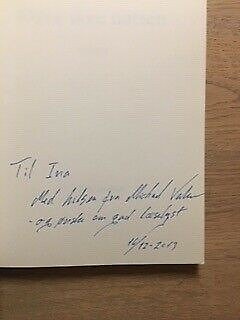 Til Ina
Med hilsen fra Michael
- og ønske om god læselyst
16/12-2013